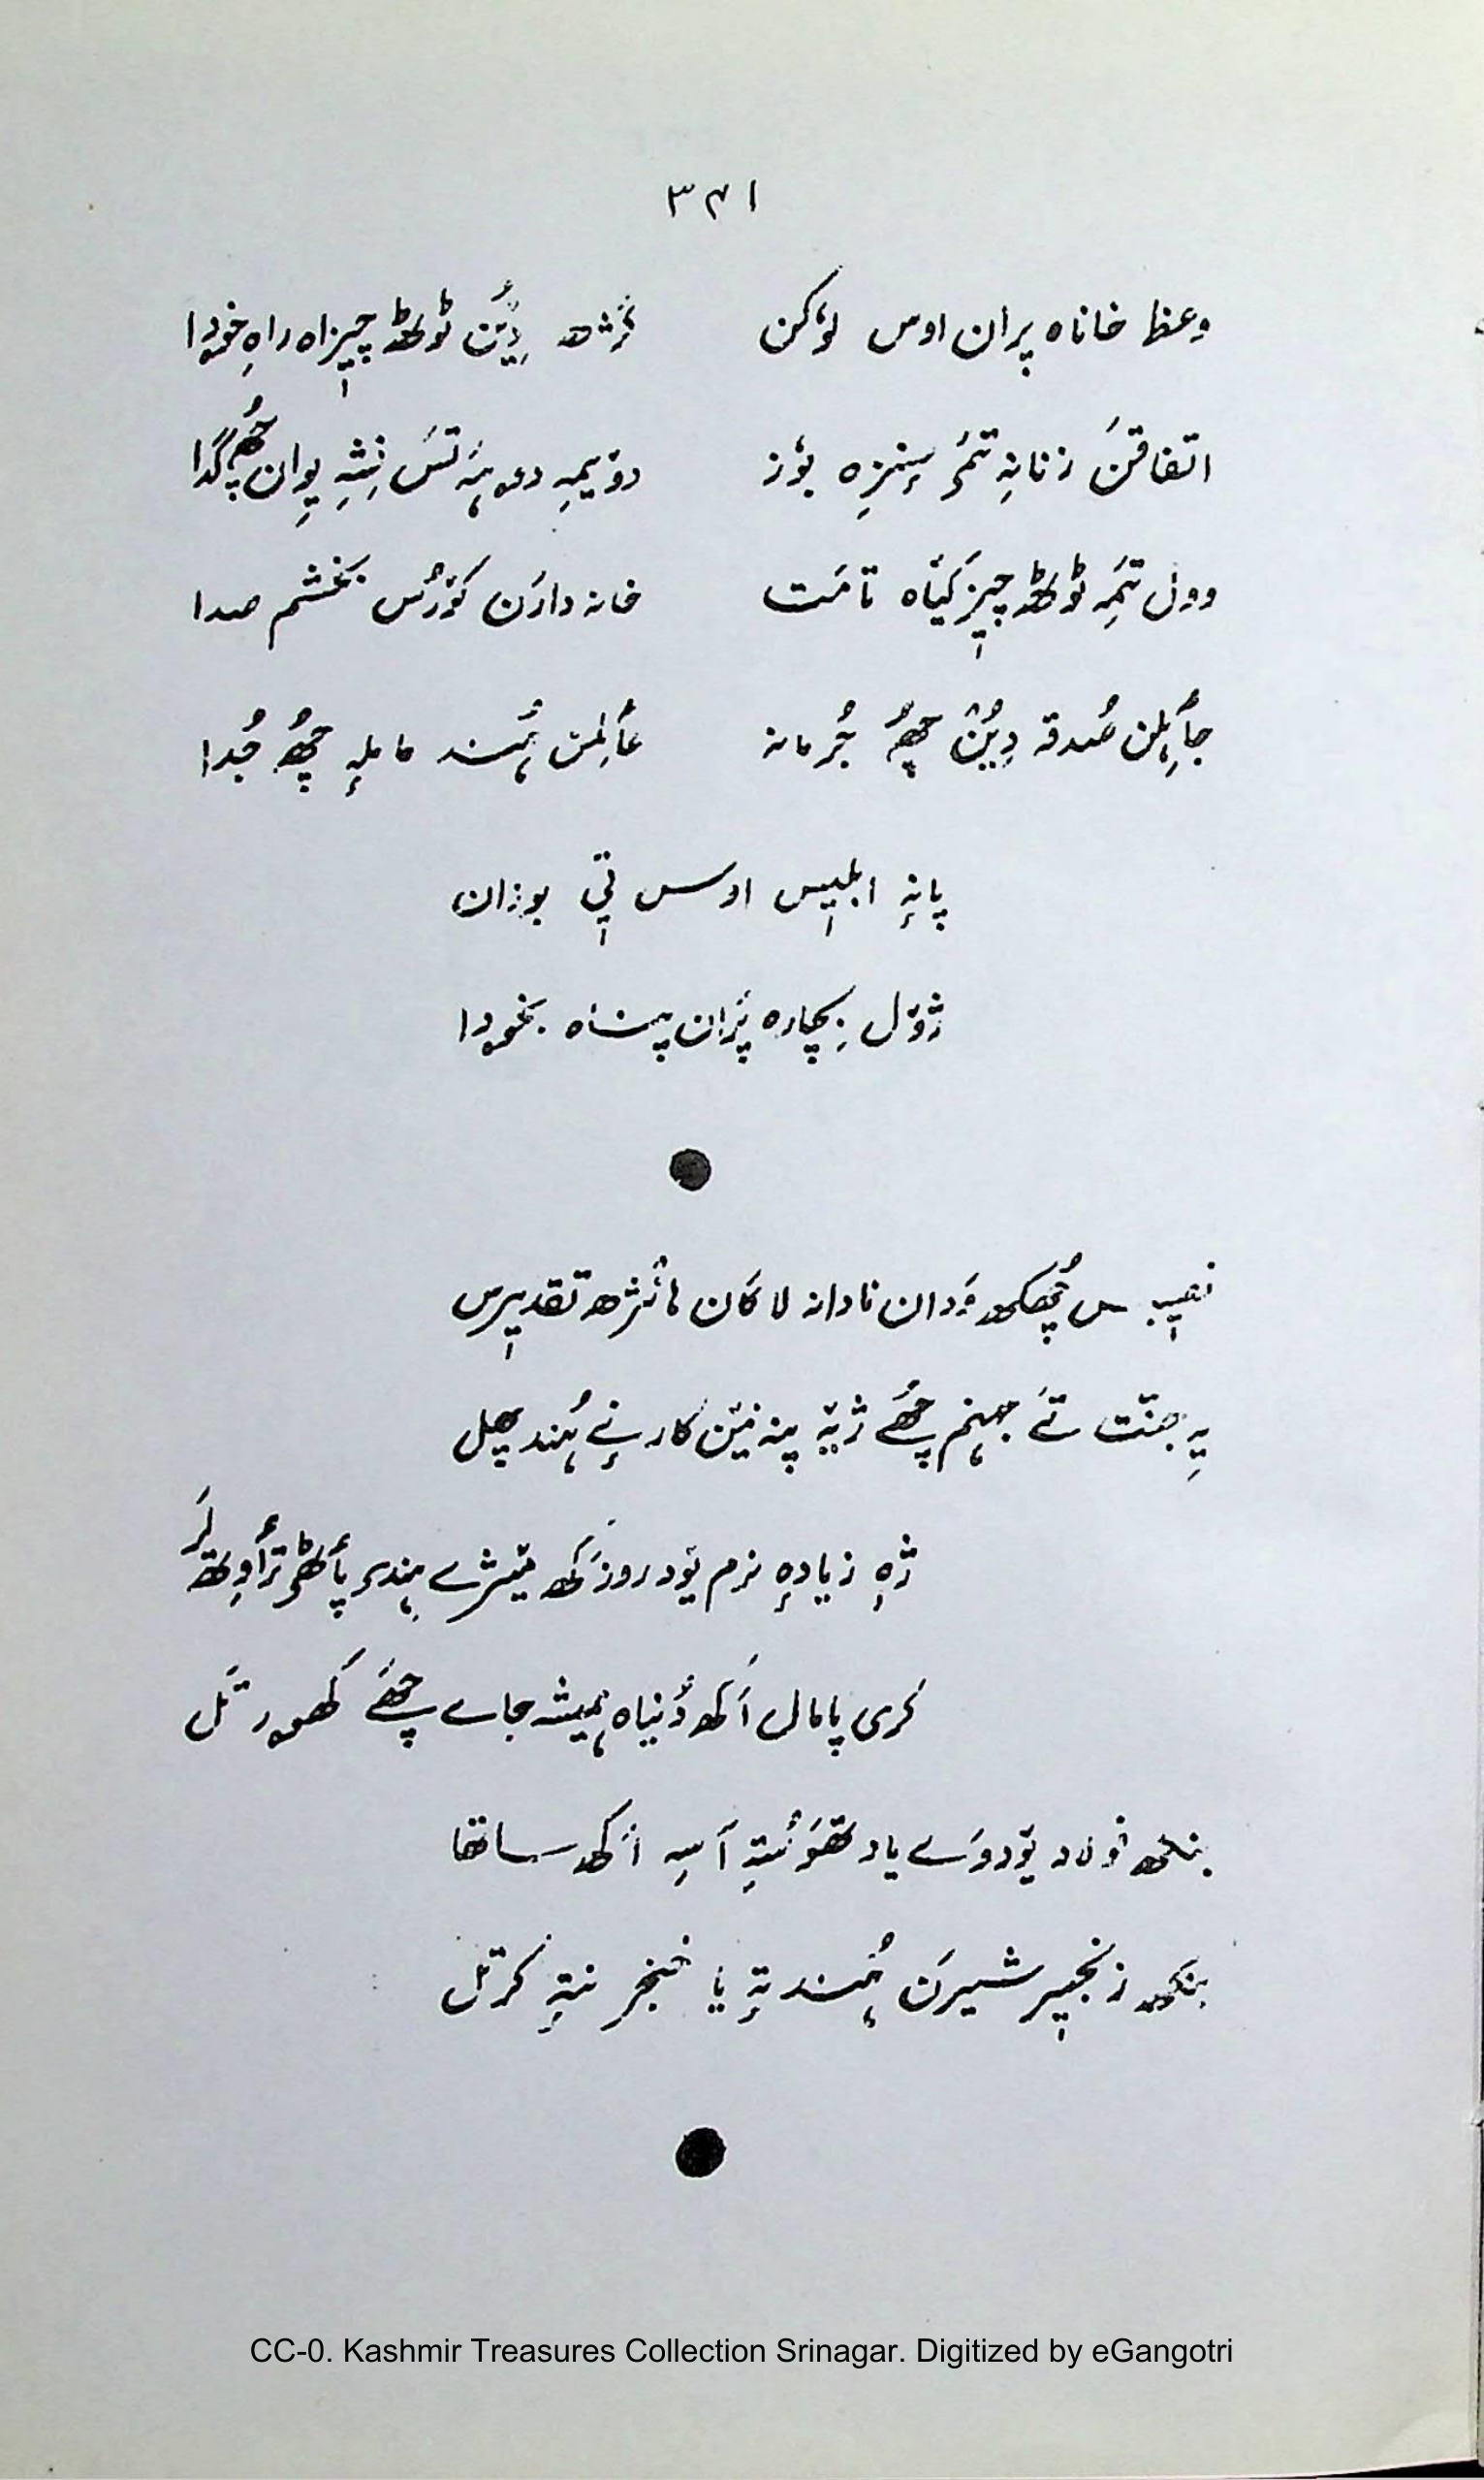 ۳۴۱
وعظ خاناہ پران اوس لۆکن گژھہِ دِیُن ٹوٹھ چیزاہ راہِ خۄدا
اتفاقن زنانہِ تمۍ سٕنزِہ بوٗز دۆیمہِ دۄہَے تَس نِشہِ یِوان چھُ گدا
ووٚل تمہِ ٹوٹھ چیز کیٛاہ تامَت خانہ دارَن کوٚرُس بخشم صدا
جٲہِلن صُدقہ دِیُن چھُ جُرمانہ عٲلِمن ہُند مامِلہٕ چھُ جُدا
پانہٕ ابلیس اوس تی بوزان
ژوٚل بِچارہ پَران پناہ بخۄدا
نصیبس چھُکھ وَدان نادانہ لاکان ہٲنژھ تقدیرس
یہِ جنّت تَے جہنم چھَے ژیٚہ پنہٕ نیٚن کارنے ہُند پھل
ژٕہ زیادہٕ نرم یۆد روزَکھ میٚژے ہِندۍ پٲٹھۍ ترٲوِتھ لَر
کری پامال اَکھ دُنیاہ ہمیشہ جاے چھَے کھۄر تَل
بنکھ فولاد یۆدوَے یاد تھَوُتہِ آسہِ اَکھ ساتھا
بنکھ زنجیر شیرَن ہُند تہٕ یا خنجر نتہٕ کرتل
CC-0. Kashmir Treasures Collection Srinagar. Digitized by eGangotri